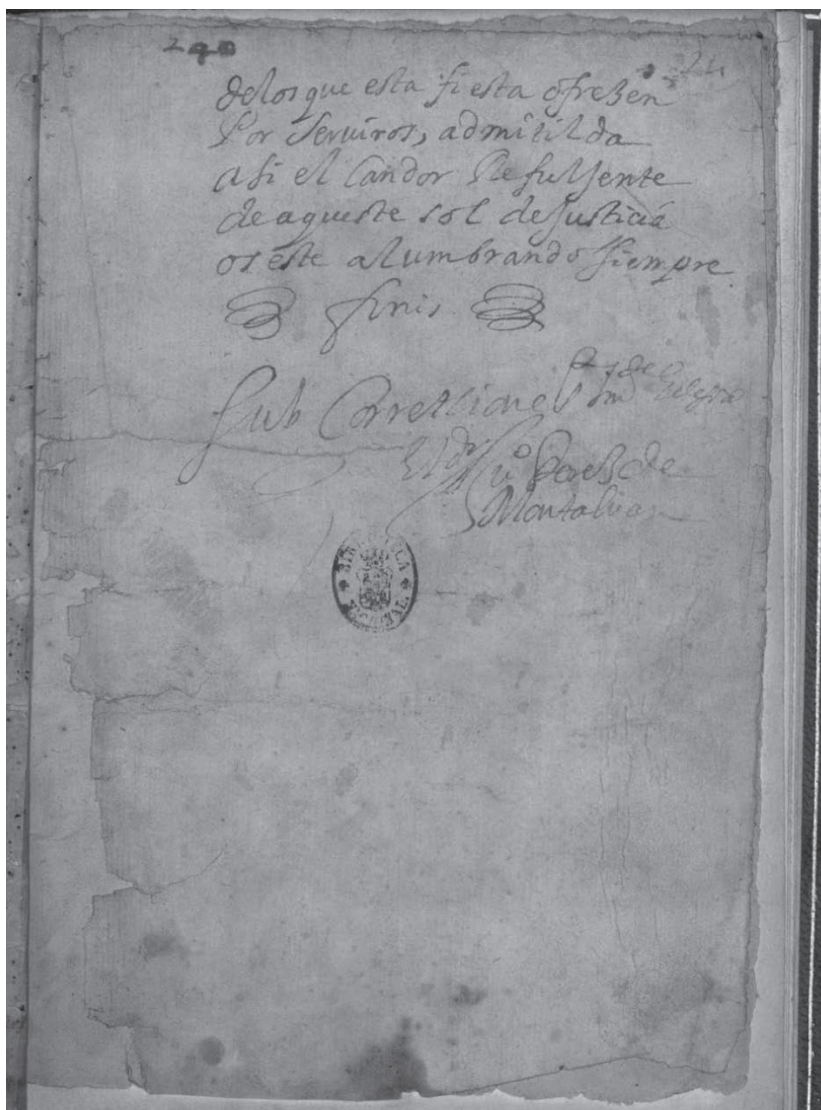 240 24
de los que esta fiesta ofrezen
Por serviros, admitilda
asi el Candor Refulsente
de aqueste sol de Justicia
os este alumbrando siempre
finis
Sub Correctione S.
El dr Juo Perez de
Montalvan
BIBLIOTECA NACIONAL